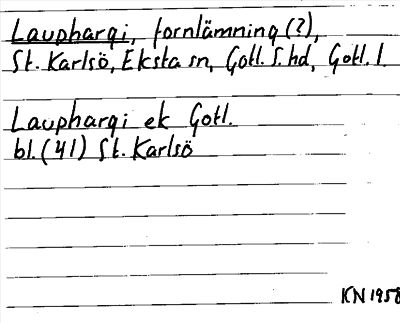 Lauphargi, fornlämning(?),
St. Karlsö, Eksta sn, Gotl. S. hd, Gotl. l.
Lauphargi ek Gotl.
bl. (41) St. Karlsö
KN 1958